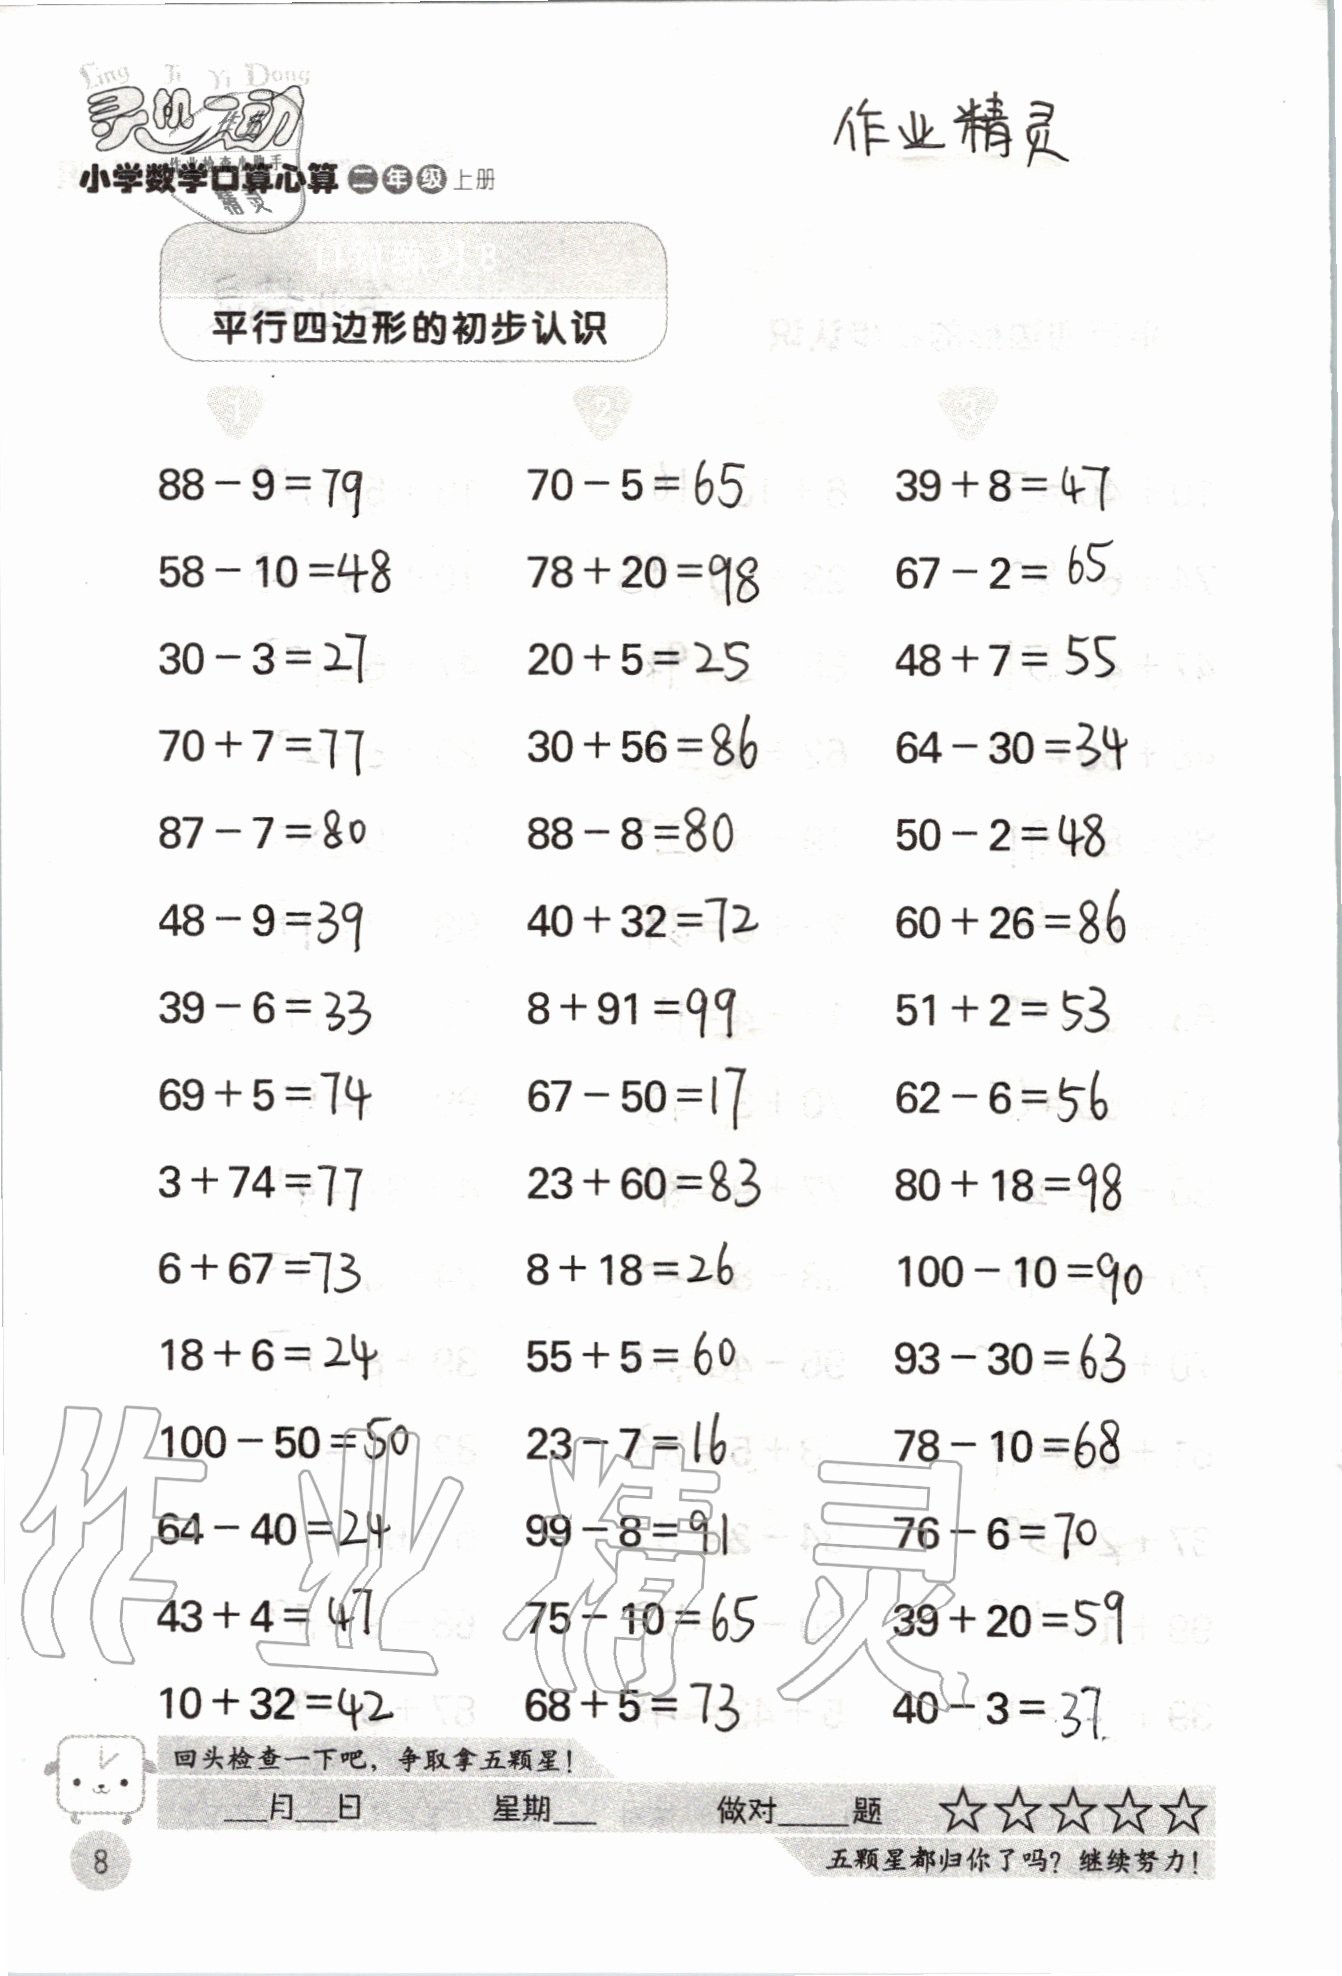 Ling Ji Yi Dong
灵机一动
作业精灵
作业检查小助手
小学数学口算心算 二年级 上册
精灵
口算练习8
平行四边形的初步认识
1 2 3
88－9＝79 70－5＝65 39＋8＝47
58－10＝48 78＋20＝98 67－2＝65
30－3＝27 20＋5＝25 48＋7＝55
70＋7＝77 30＋56＝86 64－30＝34
87－7＝80 88－8＝80 50－2＝48
48－9＝39 40＋32＝72 60＋26＝86
39－6＝33 8＋91＝99 51＋2＝53
69＋5＝74 67－50＝17 62－6＝56
3＋74＝77 23＋60＝83 80＋18＝98
6＋67＝73 8＋18＝26 100－10＝90
18＋6＝24 55＋5＝60 93－30＝63
100－50＝50 23－7＝16 78－10＝68
64－40＝24 99－8＝91 76－6＝70
43＋4＝47 75－10＝65 39＋20＝59
10＋32＝42 68＋5＝73 40－3＝37
作业精灵
回头检查一下吧，争取拿五颗星！
___月___日 星期___ 做对_____题 ☆☆☆☆☆
8
五颗星都归你了吗？继续努力！